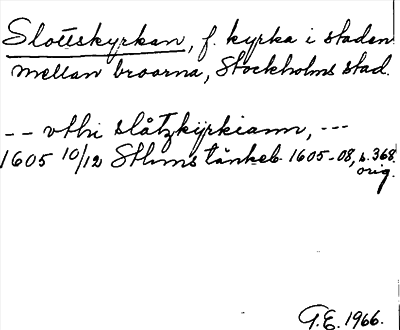 Slottskyrkan, f. kyrka i staden
mellan broarna, Stockholms stad.
-- vthi slåtzkÿrkiann, ---
1605 10/12 Sthms tänkeb. 1605-08, s. 368.
orig.
G.E. 1966.